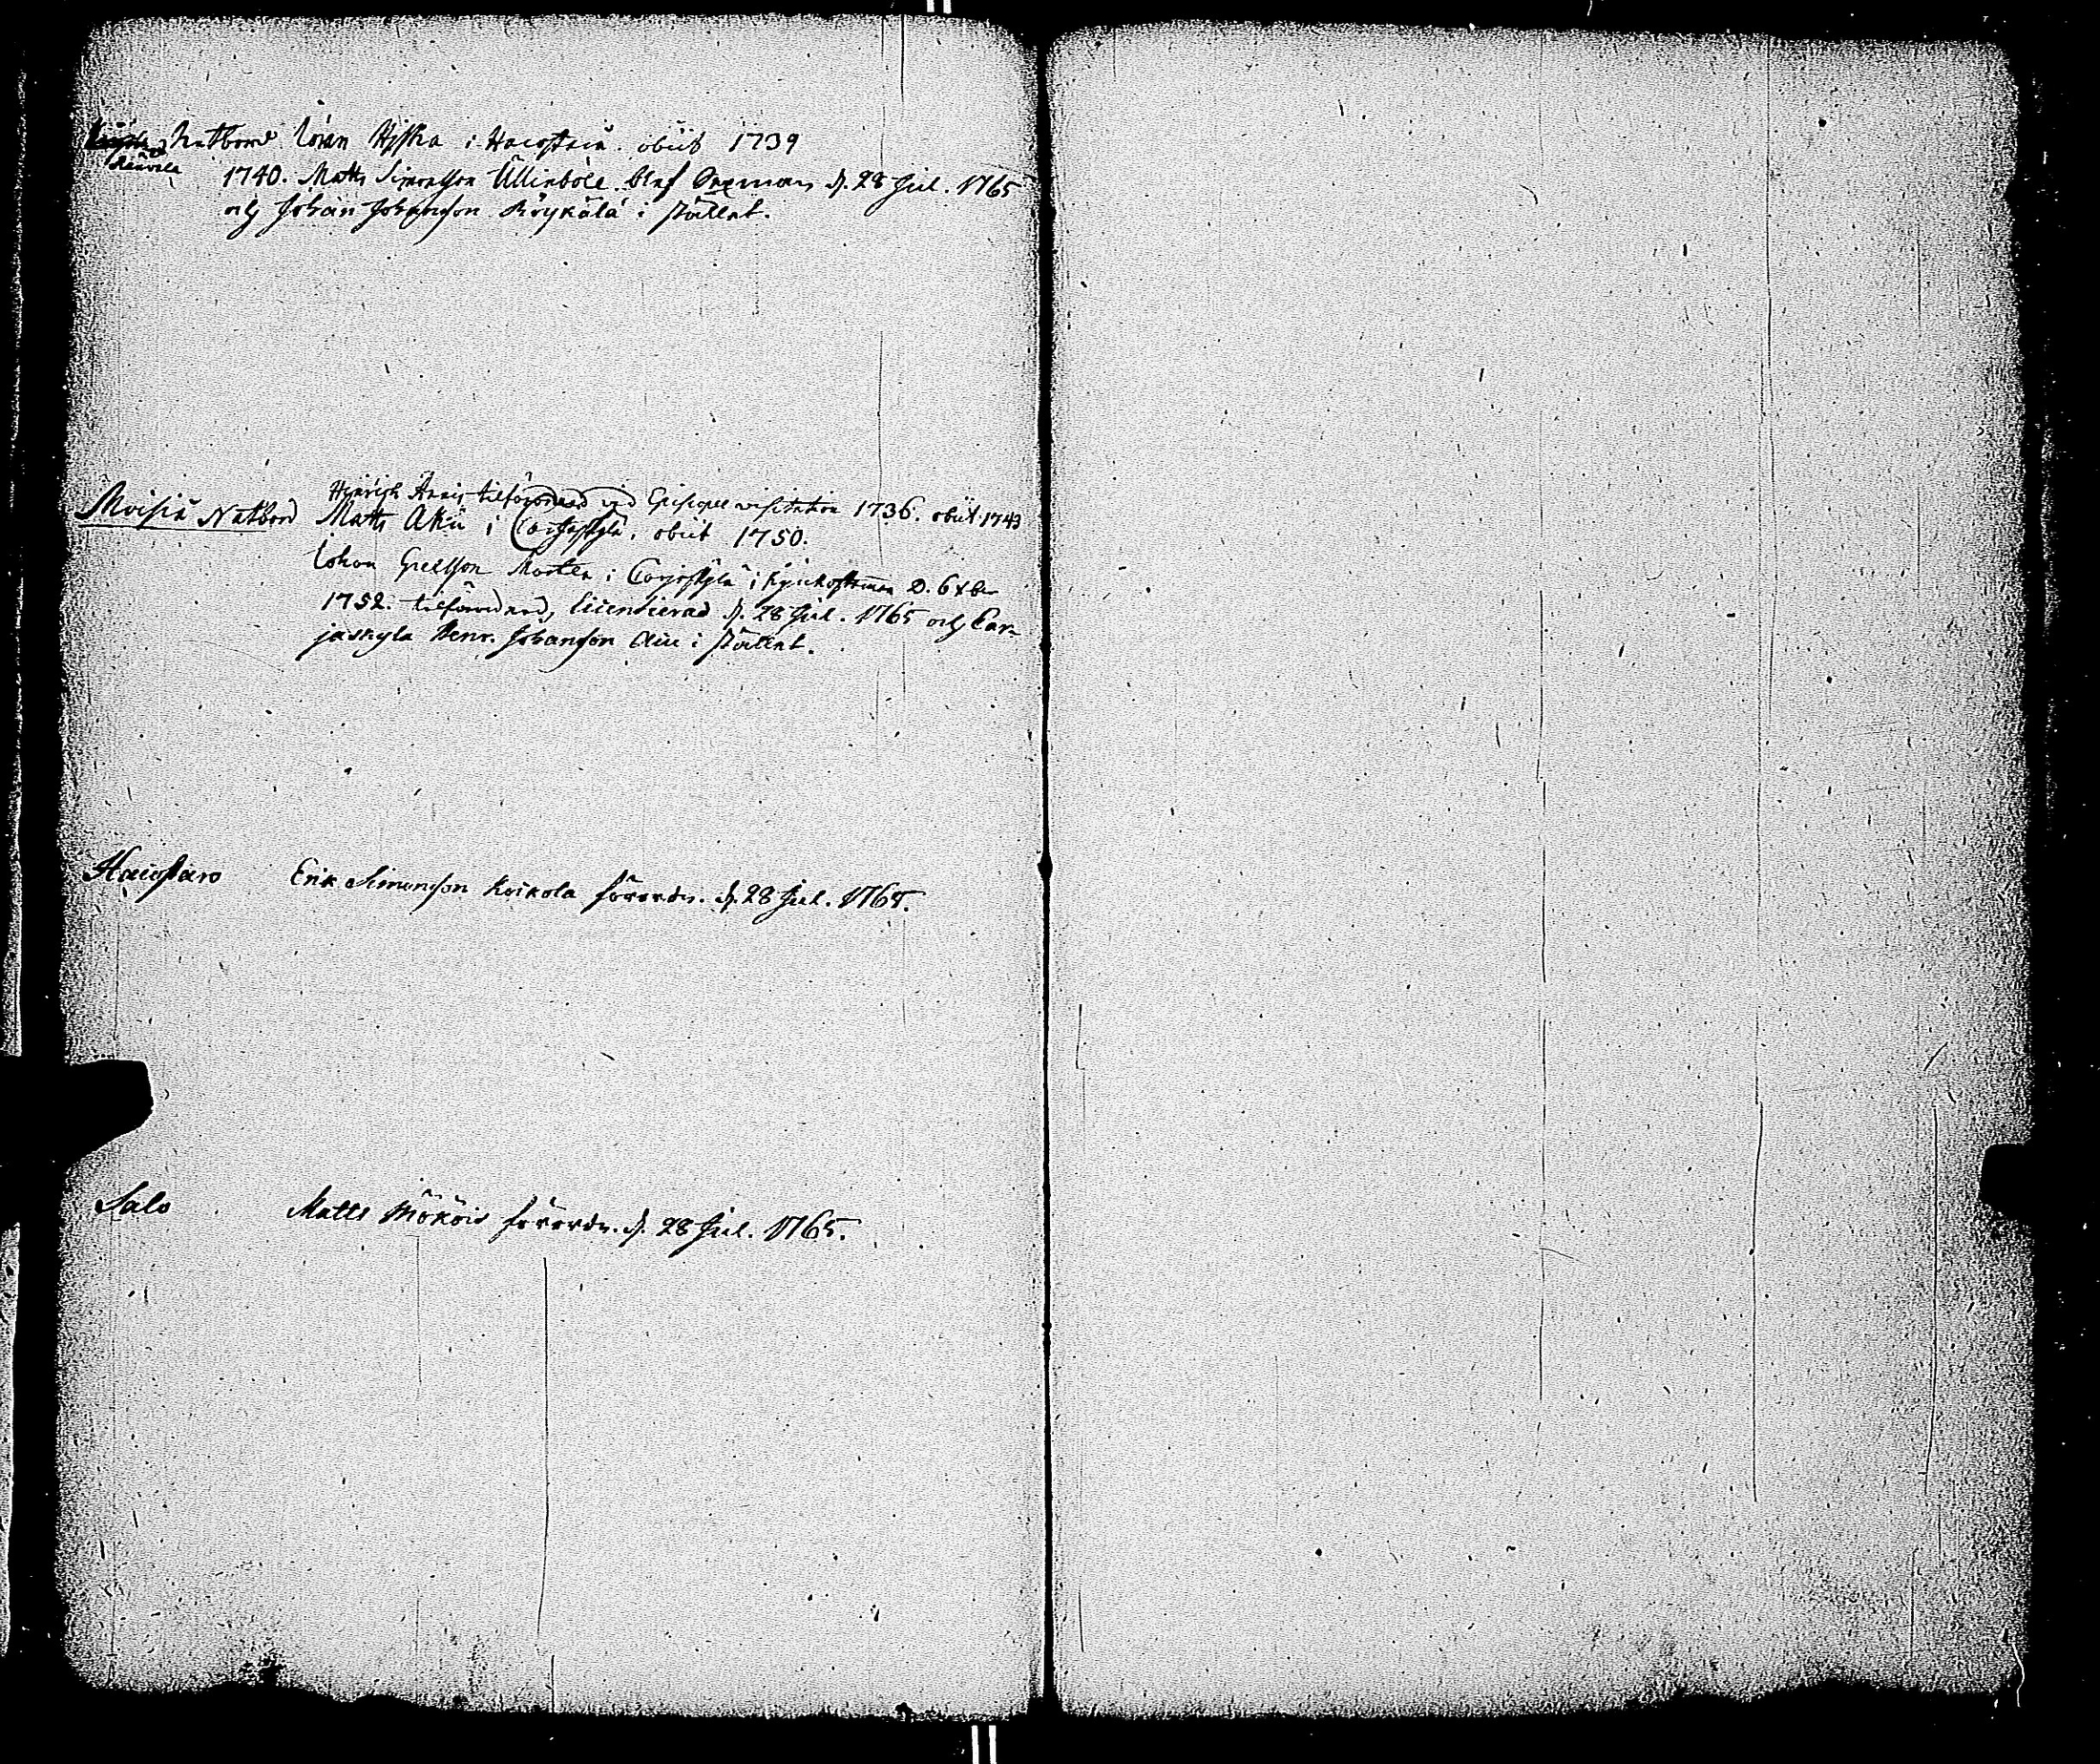 Natbord Iöran Hyssha i Haustari. obiit 1739
Räuvola
1740. Matts Simonsson Ällinböle. blef Sexman d. 28 Jul. 1765
och Johan Johansson Röykälä i stället.
Moisiå Natbord Hinrich tilförordnad vid Episcopel visitation 1736. obiit 1743
Matts Akii i Carjaskylä. obiit 1750.
Iohan Grelsson Morten i Carjaskylä i kyrckostemma D. 6 xber
1752. tilförordnad, licentierad d. 28 Jul. 1765 och Car-
jaskyla Henr. Johansson i stället.
Haustaro Erik Simonsson Koikola förordn. d. 28 Jul. 1765.
Salo Matts Mököis förordn. d. 28 Jul. 1765.